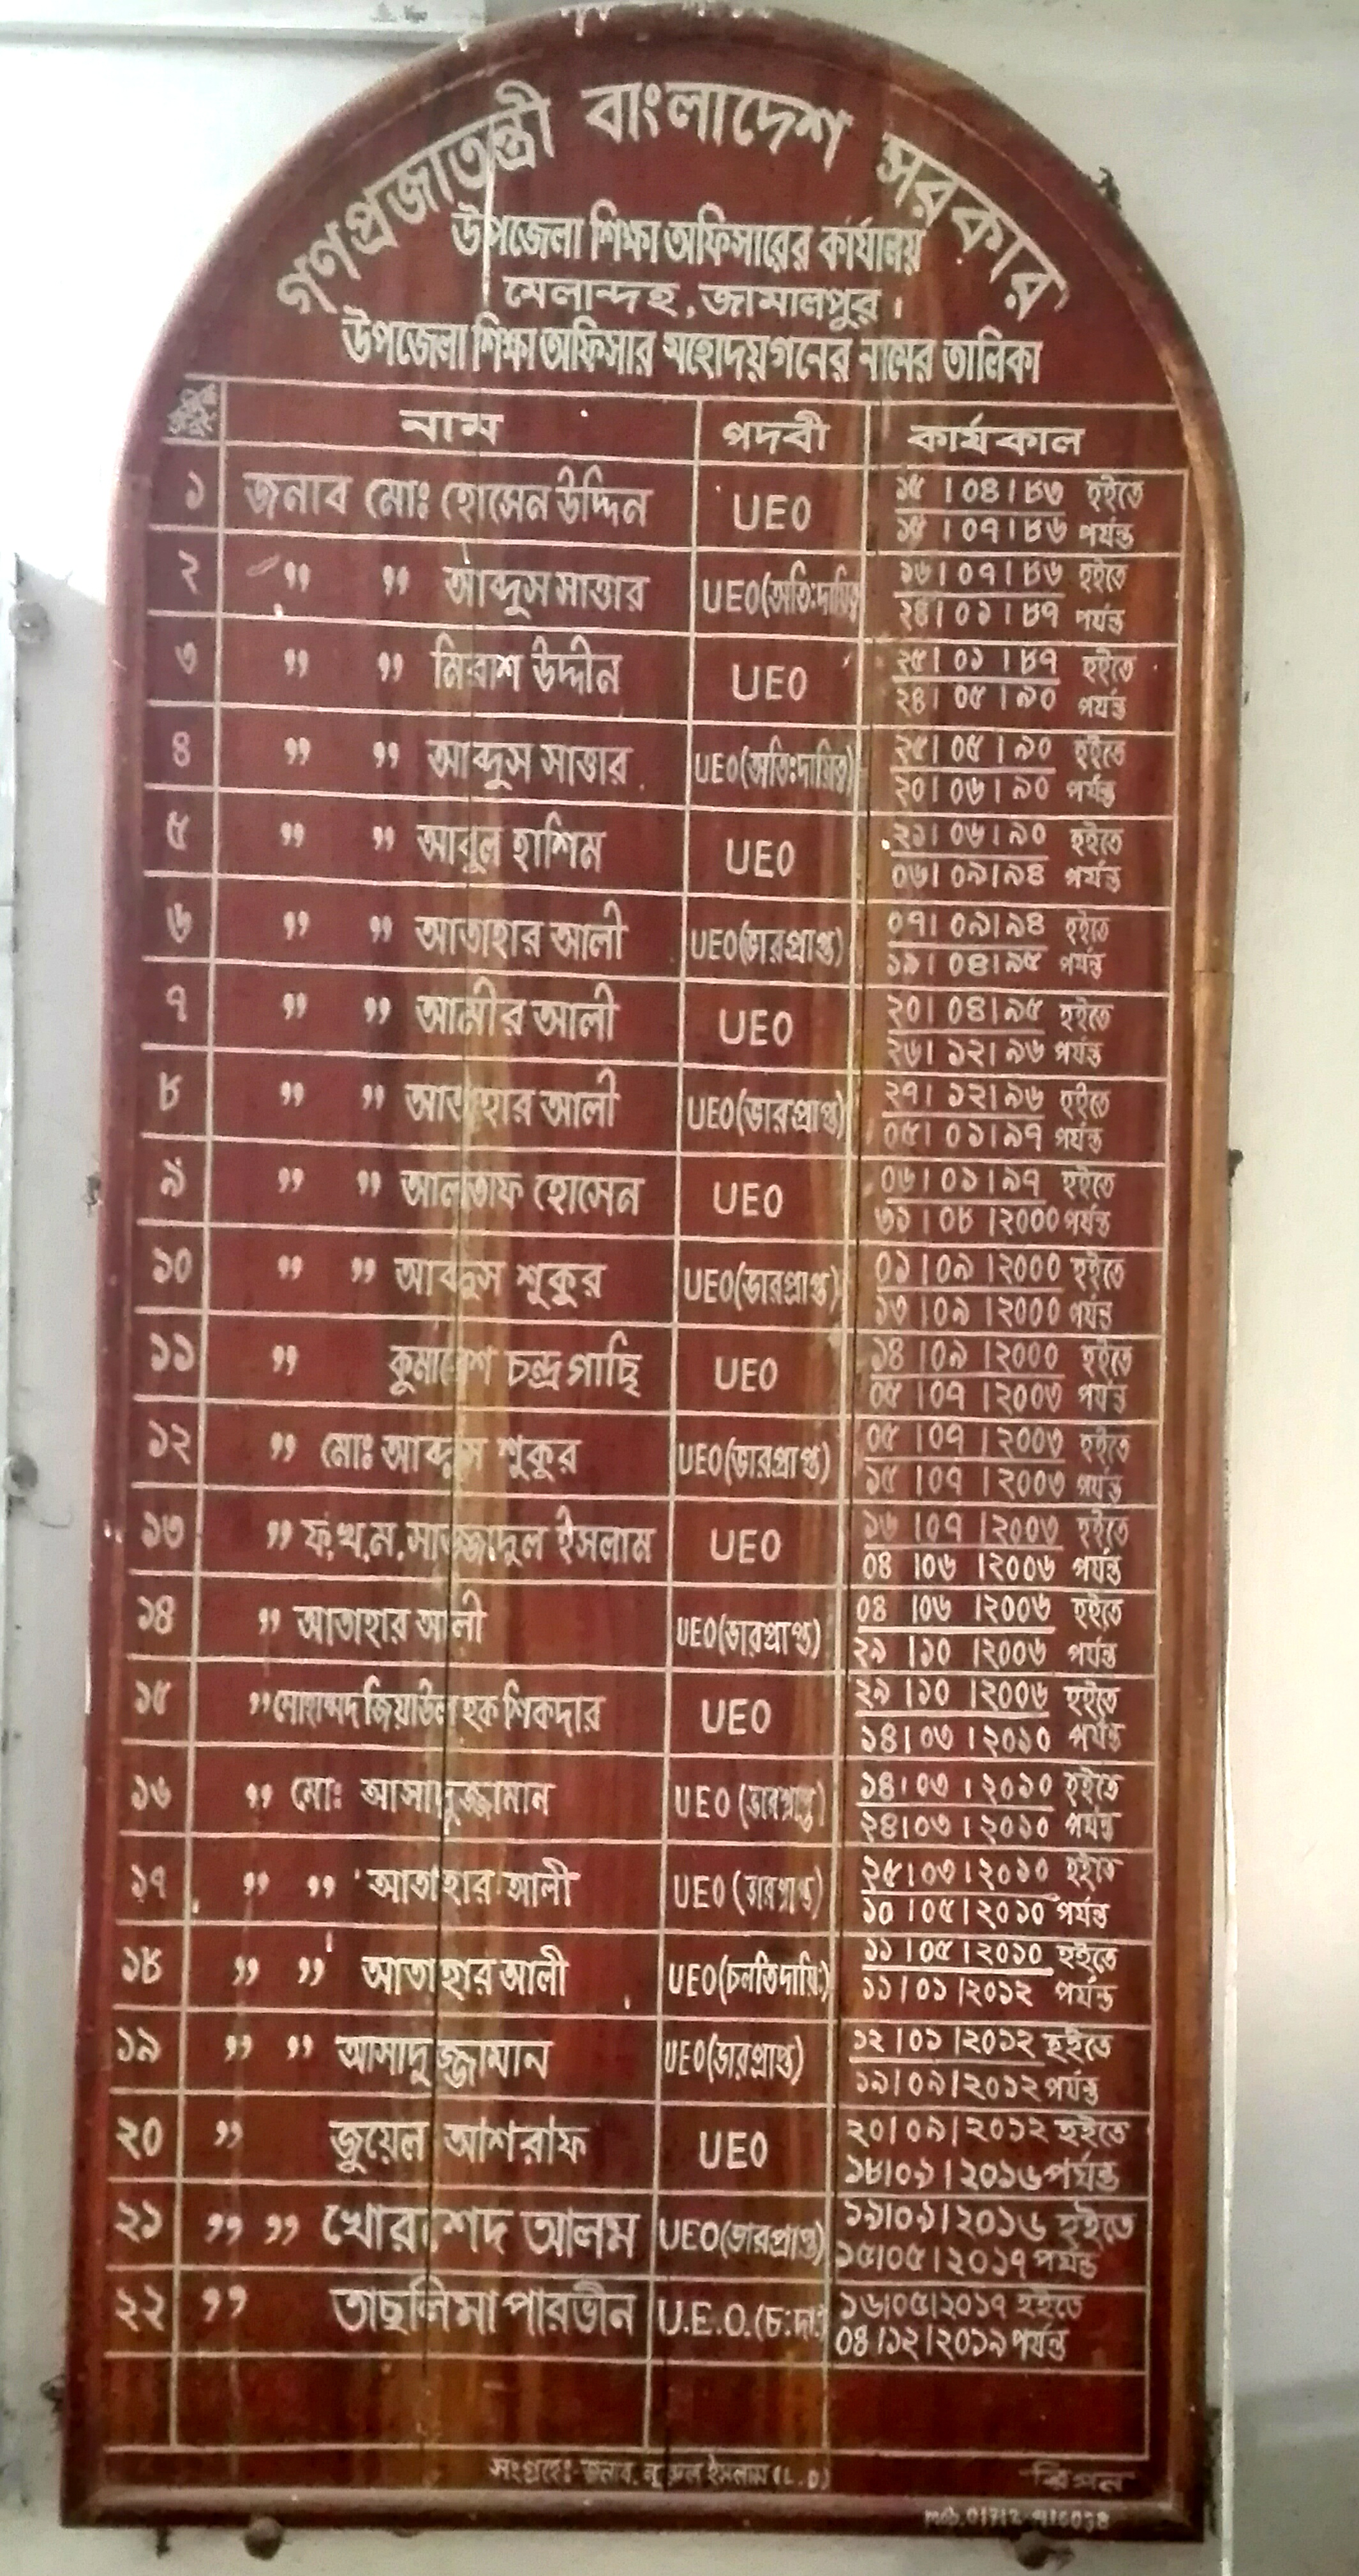 গণপ্রজাতন্ত্রী বাংলাদেশ সরকার
উপজেলা শিক্ষা অফিসারের কার্যালয়
মেলান্দহ, জামালপুর।
উপজেলা শিক্ষা অফিসার মহোদয়গনের নামের তালিকা
নাম পদবী কার্যকাল
১ জনাব মোঃ হোসেন উদ্দিন UEO ১৫।০৪।৮৩ হইতে
১৫।০৭।৮৬ পর্যন্ত
২ " " আব্দুস সাত্তার UEO(অতি:দায়িত্ব ১৬।০৭।৮৬ হইতে
২৪।০১।৮৭ পর্যন্ত
৩ " " মিরাশ উদ্দীন UEO ২৫।০১।৮৭ হইতে
২৪।০৫।৯০ পর্যন্ত
৪ " " আব্দুস সাত্তার UEO(অতি:দায়িত্ব) ২৫।০৫।৯০ হইতে
২০।০৬।৯০ পর্যন্ত
৫ " " আবুল হাশিম UEO ২১।০৬।৯০ হইতে
০৬।০৯।৯৪ পর্যন্ত
৬ " " আতাহার আলী UEO(ভারপ্রাপ্ত) ০৭।০৯।৯৪ হইতে
১৯।০৪।৯৫ পর্যন্ত
৭ " " আমীর আলী UEO ২০।০৪।৯৫ হইতে
২৬।১২।৯৬ পর্যন্ত
৮ " " আতাহার আলী UEO(ভারপ্রাপ্ত) ২৭।১২।৯৬ হইতে
০৫।০১।৯৭ পর্যন্ত
৯ " " আলতাফ হোসেন UEO ০৬।০১।৯৭ হইতে
৩১।০৮।২০০০ পর্যন্ত
১০ " " আব্দুস শুকুর UEO(ভারপ্রাপ্ত) ০১।০৯।২০০০ হইতে
১৩।০৯।২০০০ পর্যন্ত
১১ " কুমারেশ চন্দ্র গাছি UEO ১৪।০৯।২০০০ হইতে
০৫।০৭।২০০৩ পর্যন্ত
১২ " মোঃ আব্দুস শুকুর UEO(ভারপ্রাপ্ত) ০৫।০৭।২০০৩ হইতে
১৫।০৭।২০০৩ পর্যন্ত
১৩ " ফ.খ.ম. সাজ্জাদুল ইসলাম UEO ১৬।০৭।২০০৩ হইতে
০৪।০৬।২০০৬ পর্যন্ত
১৪ " আতাহার আলী UEO(ভারপ্রাপ্ত) ০৪।০৬।২০০৬ হইতে
২৯।১০।২০০৬ পর্যন্ত
১৫ " মোহাম্মদ জিয়াউল হক শিকদার UEO ২৯।১০।২০০৬ হইতে
১৪।০৩।২০১০ পর্যন্ত
১৬ " মোঃ আসাদুজ্জামান UEO (ভারপ্রাপ্ত) ১৪।০৩।২০১০ হইতে
২৪।০৩।২০১০ পর্যন্ত
১৭ " " আতাহার আলী UEO (ভারপ্রাপ্ত) ২৫।০৩।২০১০ হইতে
১০।০৫।২০১০ পর্যন্ত
১৮ " " আতাহার আলী UEO(চলতিদায়ি:) ১১।০৫।২০১০ হইতে
১১।০১।২০১২ পর্যন্ত
১৯ " " আসাদুজ্জামান UEO(ভারপ্রাপ্ত) ১২।০১।২০১২ হইতে
১৯।০৯।২০১২ পর্যন্ত
২০ " জুয়েল আশরাফ UEO ২০।০৯।২০১২ হইতে
১৮।০১।২০১৬ পর্যন্ত
২১ " " খোরশেদ আলম UEO(ভারপ্রাপ্ত) ১৯।০১।২০১৬ হইতে
১৫।০৫।২০১৭ পর্যন্ত
২২ " তাছলিমা পারভীন U.E.O.(চ:দা:) ১৬।০৫।২০১৭ হইতে
০৪।১২।২০১৯ পর্যন্ত
সংগ্রহেঃ- জনাব. নূরুল ইসলাম (L.D) রিপন
mob. 01712-